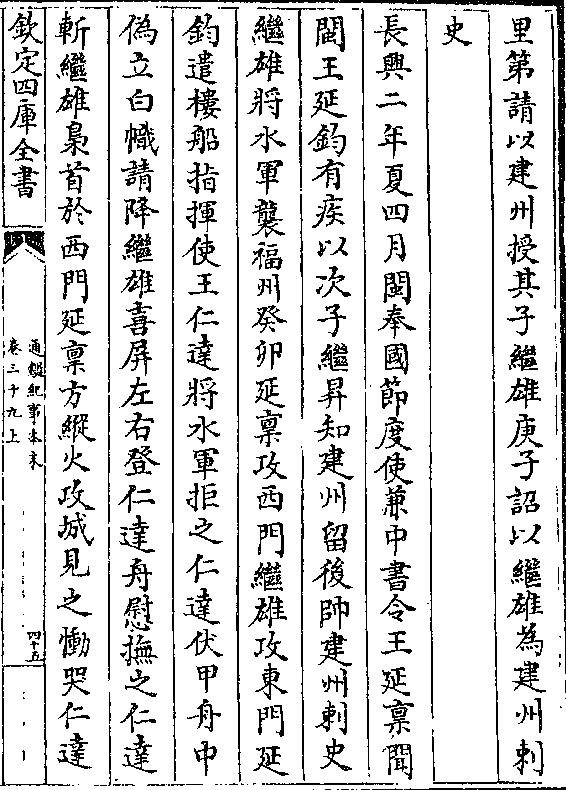 里第請以建州授其子繼雄庚子詔以繼雄為建州刺
史
長興二年夏四月閩奉國節度使兼中書令王延稟聞
閩王延鈞有疾以次子繼昇知建州留後帥建州刺史
繼雄將水軍襲福州癸卯延稟攻西門繼雄攻東門延
鈞遣樓船指揮使王仁達將水軍拒之仁達伏甲舟中
偽立白幟請降繼雄喜屏左右登仁達舟慰撫之仁達
斬繼雄梟首於西門延稟方縱火攻城見之慟哭仁達
欽定四庫全書
通鑑紀事本末
卷三十九上
四十五